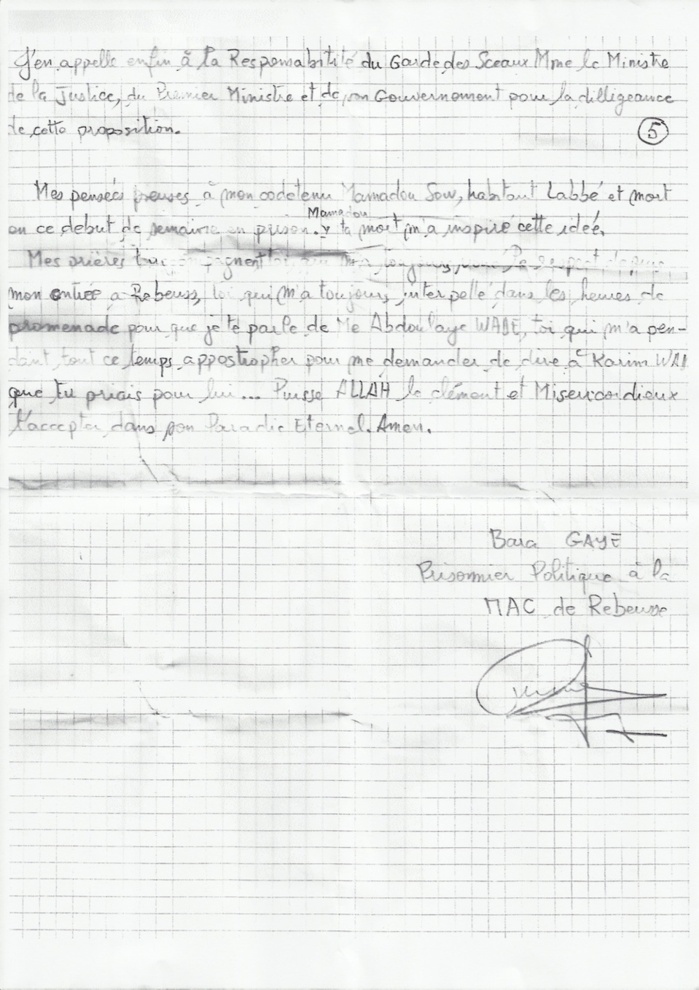 J'en appelle enfin à la Responsabilité du Garde des Sceaux Mme le Ministre
de la Justice, du Premier Ministre et de son Gouvernement pour la dilligeance
de cette proposition.
5
Mes pensées pieuses à mon codetenu Mamadou Sow, habitant Labbé et mort
en ce debut de semaine en prison. Mamadou ta mort m'a inspiré cette idée.
Mes prières toujours,
mon entrée a Rebeuss, toi qui m'a toujours interpellé dans les heures de
promenade pour que je te parle de Me Abdoulaye WADE, toi qui m'a pen-
dant tout ce temps appostropher pour me demander de dire à Karim WA
que tu priais pour lui... Puisse ALLAH le clément et Misericordieux
t'accepter dans son Paradis Eternel. Amen.
Bara GAYE
Prisonnier Politique à la
MAC de Rebeuss